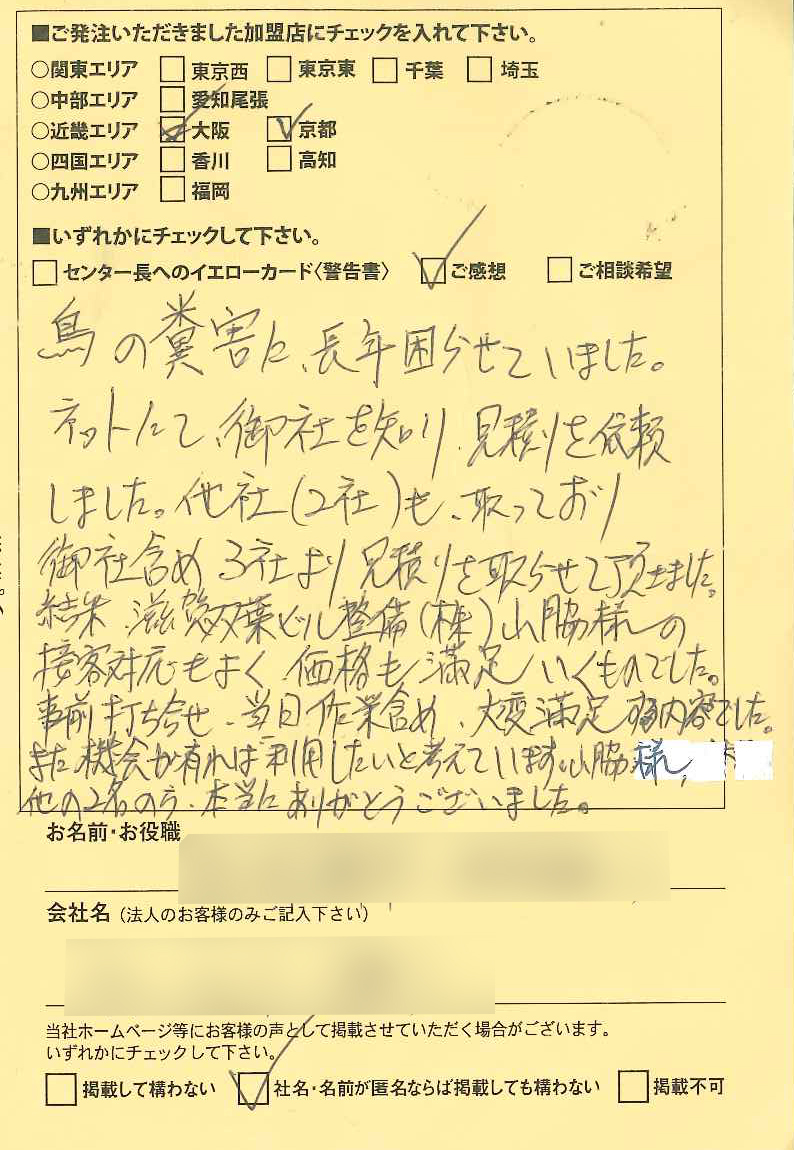 ■ご発注いただきました加盟店にチェックを入れて下さい。
○関東エリア □東京西 □東京東 □千葉 □埼玉
○中部エリア □愛知尾張
○近畿エリア ☑大阪 ☑京都
○四国エリア □香川 □高知
○九州エリア □福岡
■いずれかにチェックして下さい。
□センター長へのイエローカード〈警告書〉 ☑ご感想 □ご相談希望
鳥の糞害に、長年困らせていました。
ネットにて、御社を知り、見積りを依頼
しました。他社(2社)も、取っており
御社含め3社より見積りを取らせて頂きました。
結果 滋賀双葉ビル整備(株)山脇様の
接客対応もよく、価格も満足いくものでした。
事前打ち合せ、当日作業含め、大変満足する内容でした。
また機会が有れば利用したいと考えています。山脇様,
他の2名の方、本当にありがとうございました。
お名前・お役職
会社名(法人のお客様のみご記入下さい)
当社ホームページ等にお客様の声として掲載させていただく場合がございます。
いずれかにチェックして下さい。
□掲載して構わない ☑社名・名前が匿名ならば掲載しても構わない □掲載不可